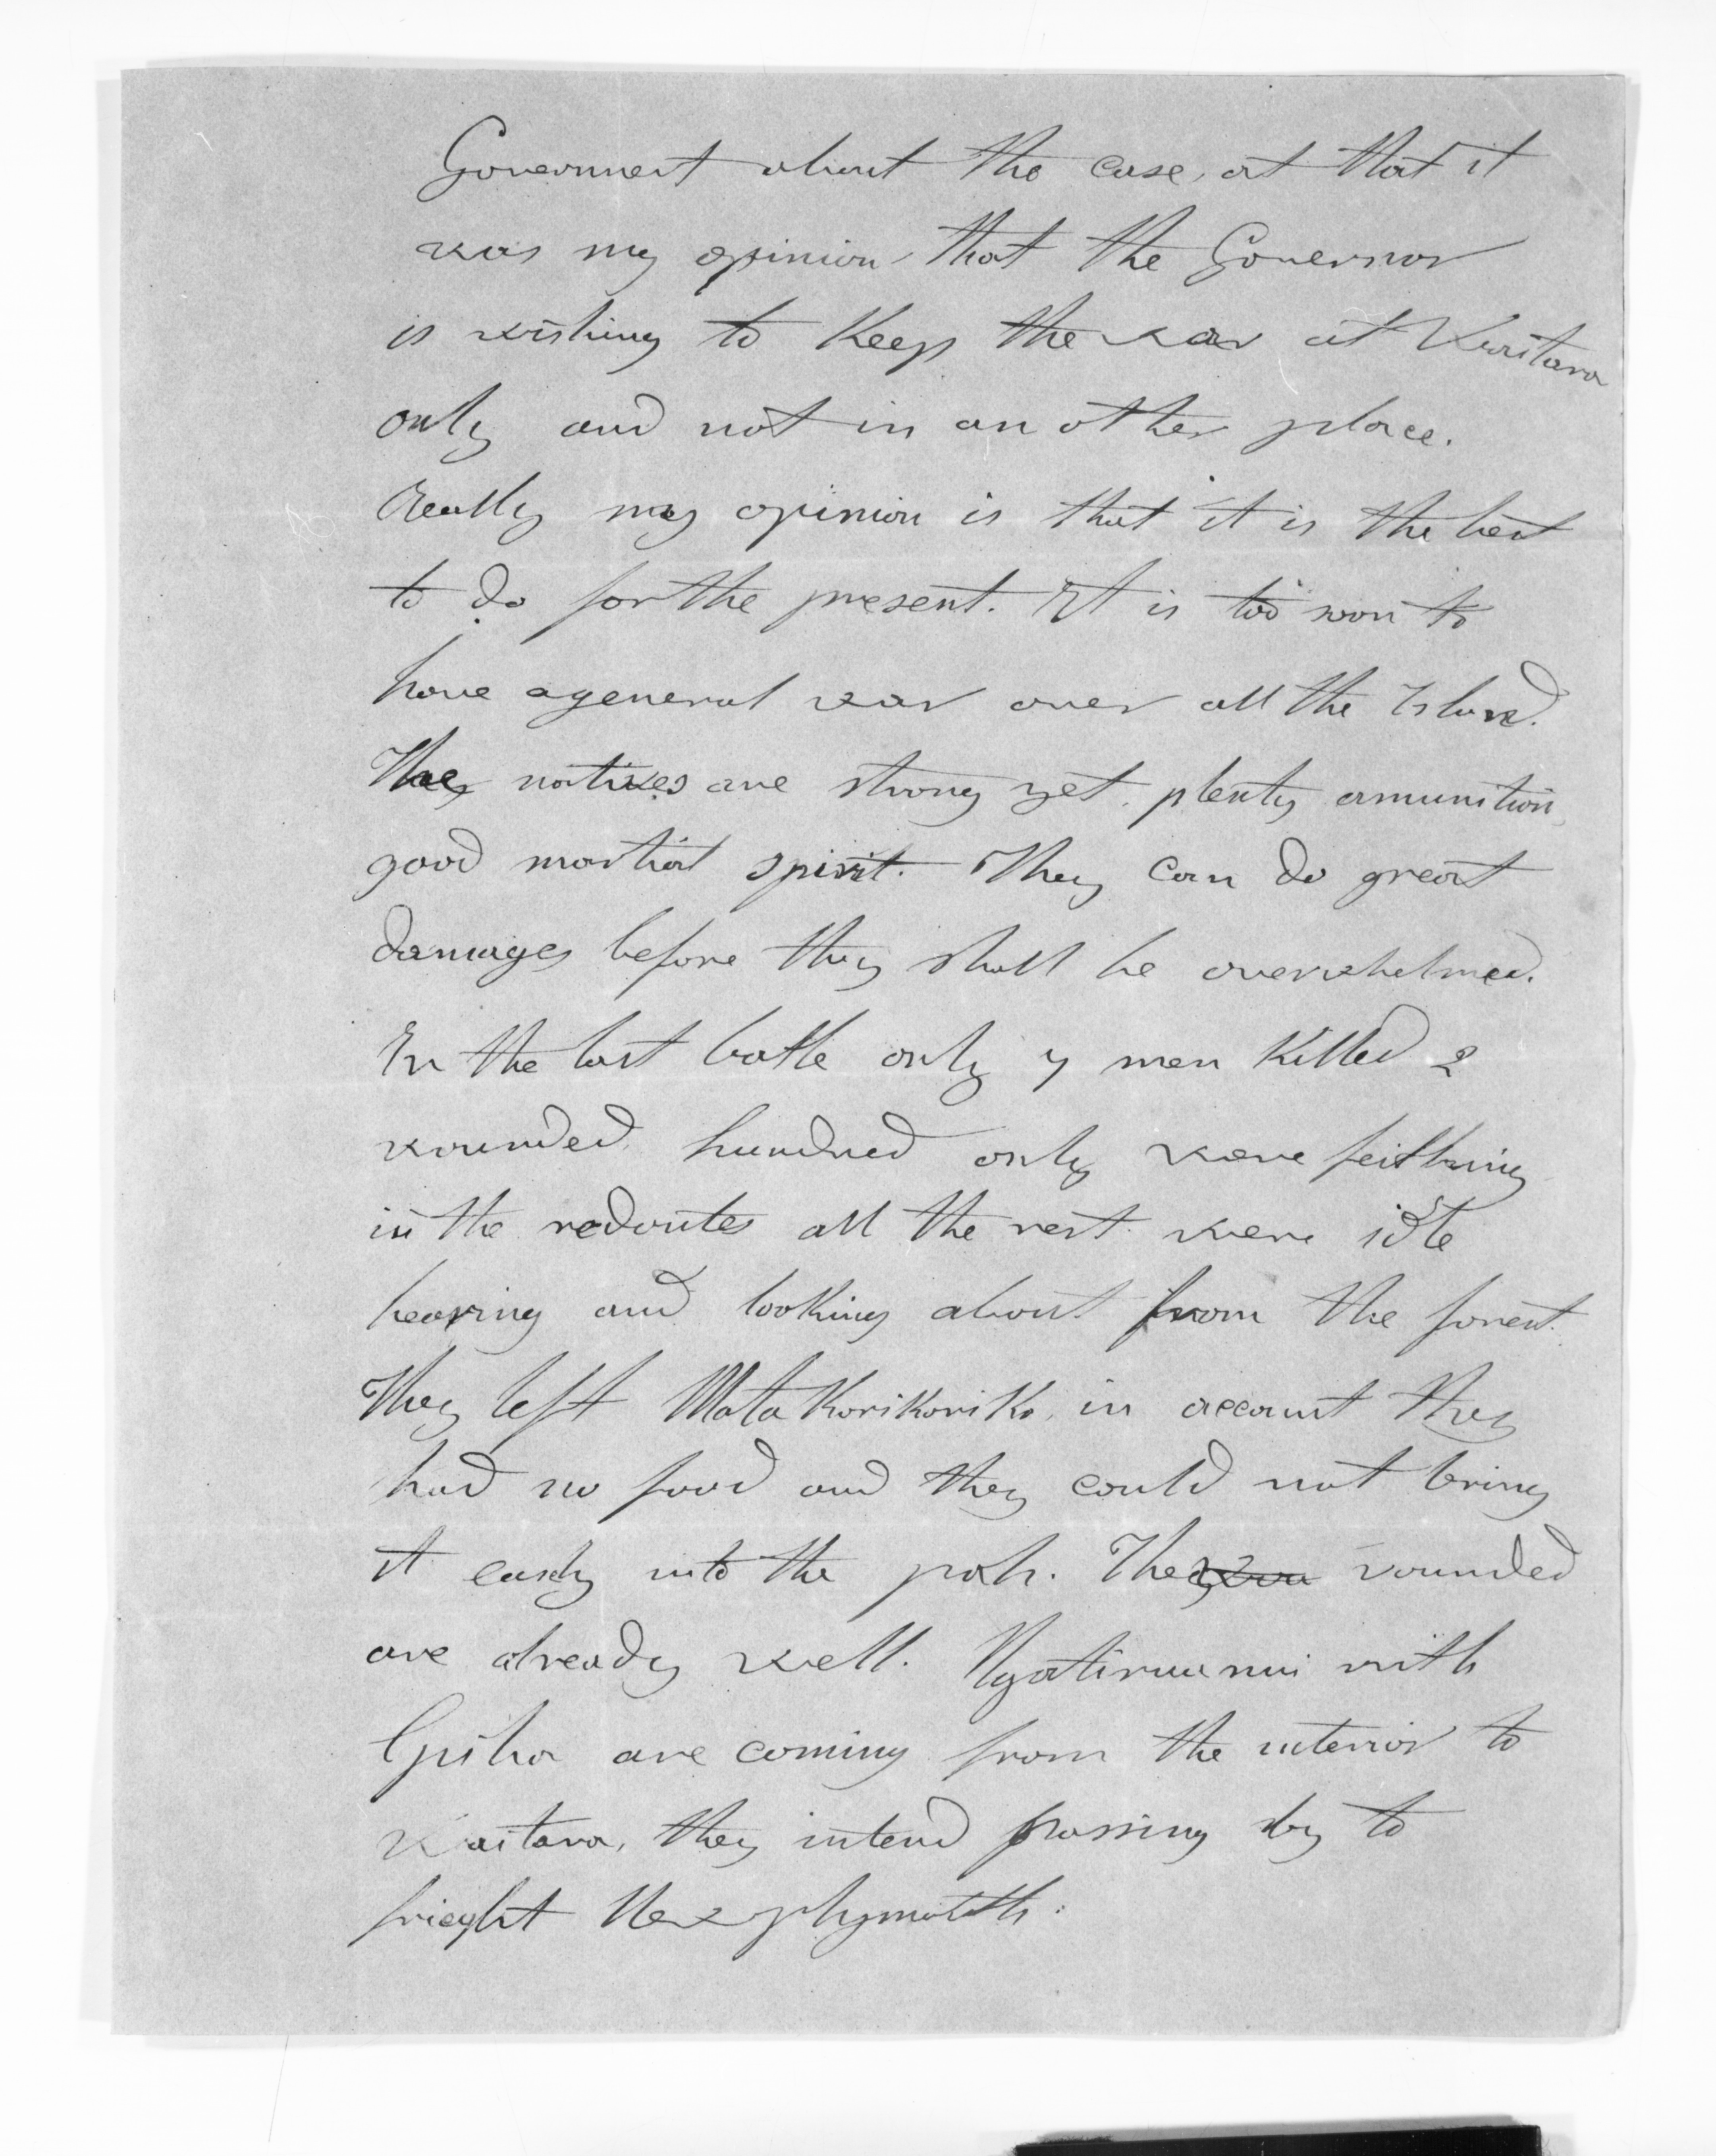 Government about the case, at that it
was my opinion that the Governor
is wishing to Keep the war at Waitara
only and not in an other place.
Really my opinion is that it is the best
to do for the present. It is too soon to
have a general war over all the Island.
The natives are strong yet. plenty amunition,
good martial spirit. They can do great
damages before they shall be overwhelmed.
In the last batle only 7 men Killed 2
wounded. hundred only were feithing
in the redoutes all the rest were idle
hearing and looking about from the forest.
They left Matakorikoriko, in account they
had no food and they could not bring
it easely into the pah. The wounded
are already well. Ngatiruanui with
Epiha are coming from the interior to
Waitara, they intend passing by to
frieght New plymouth.